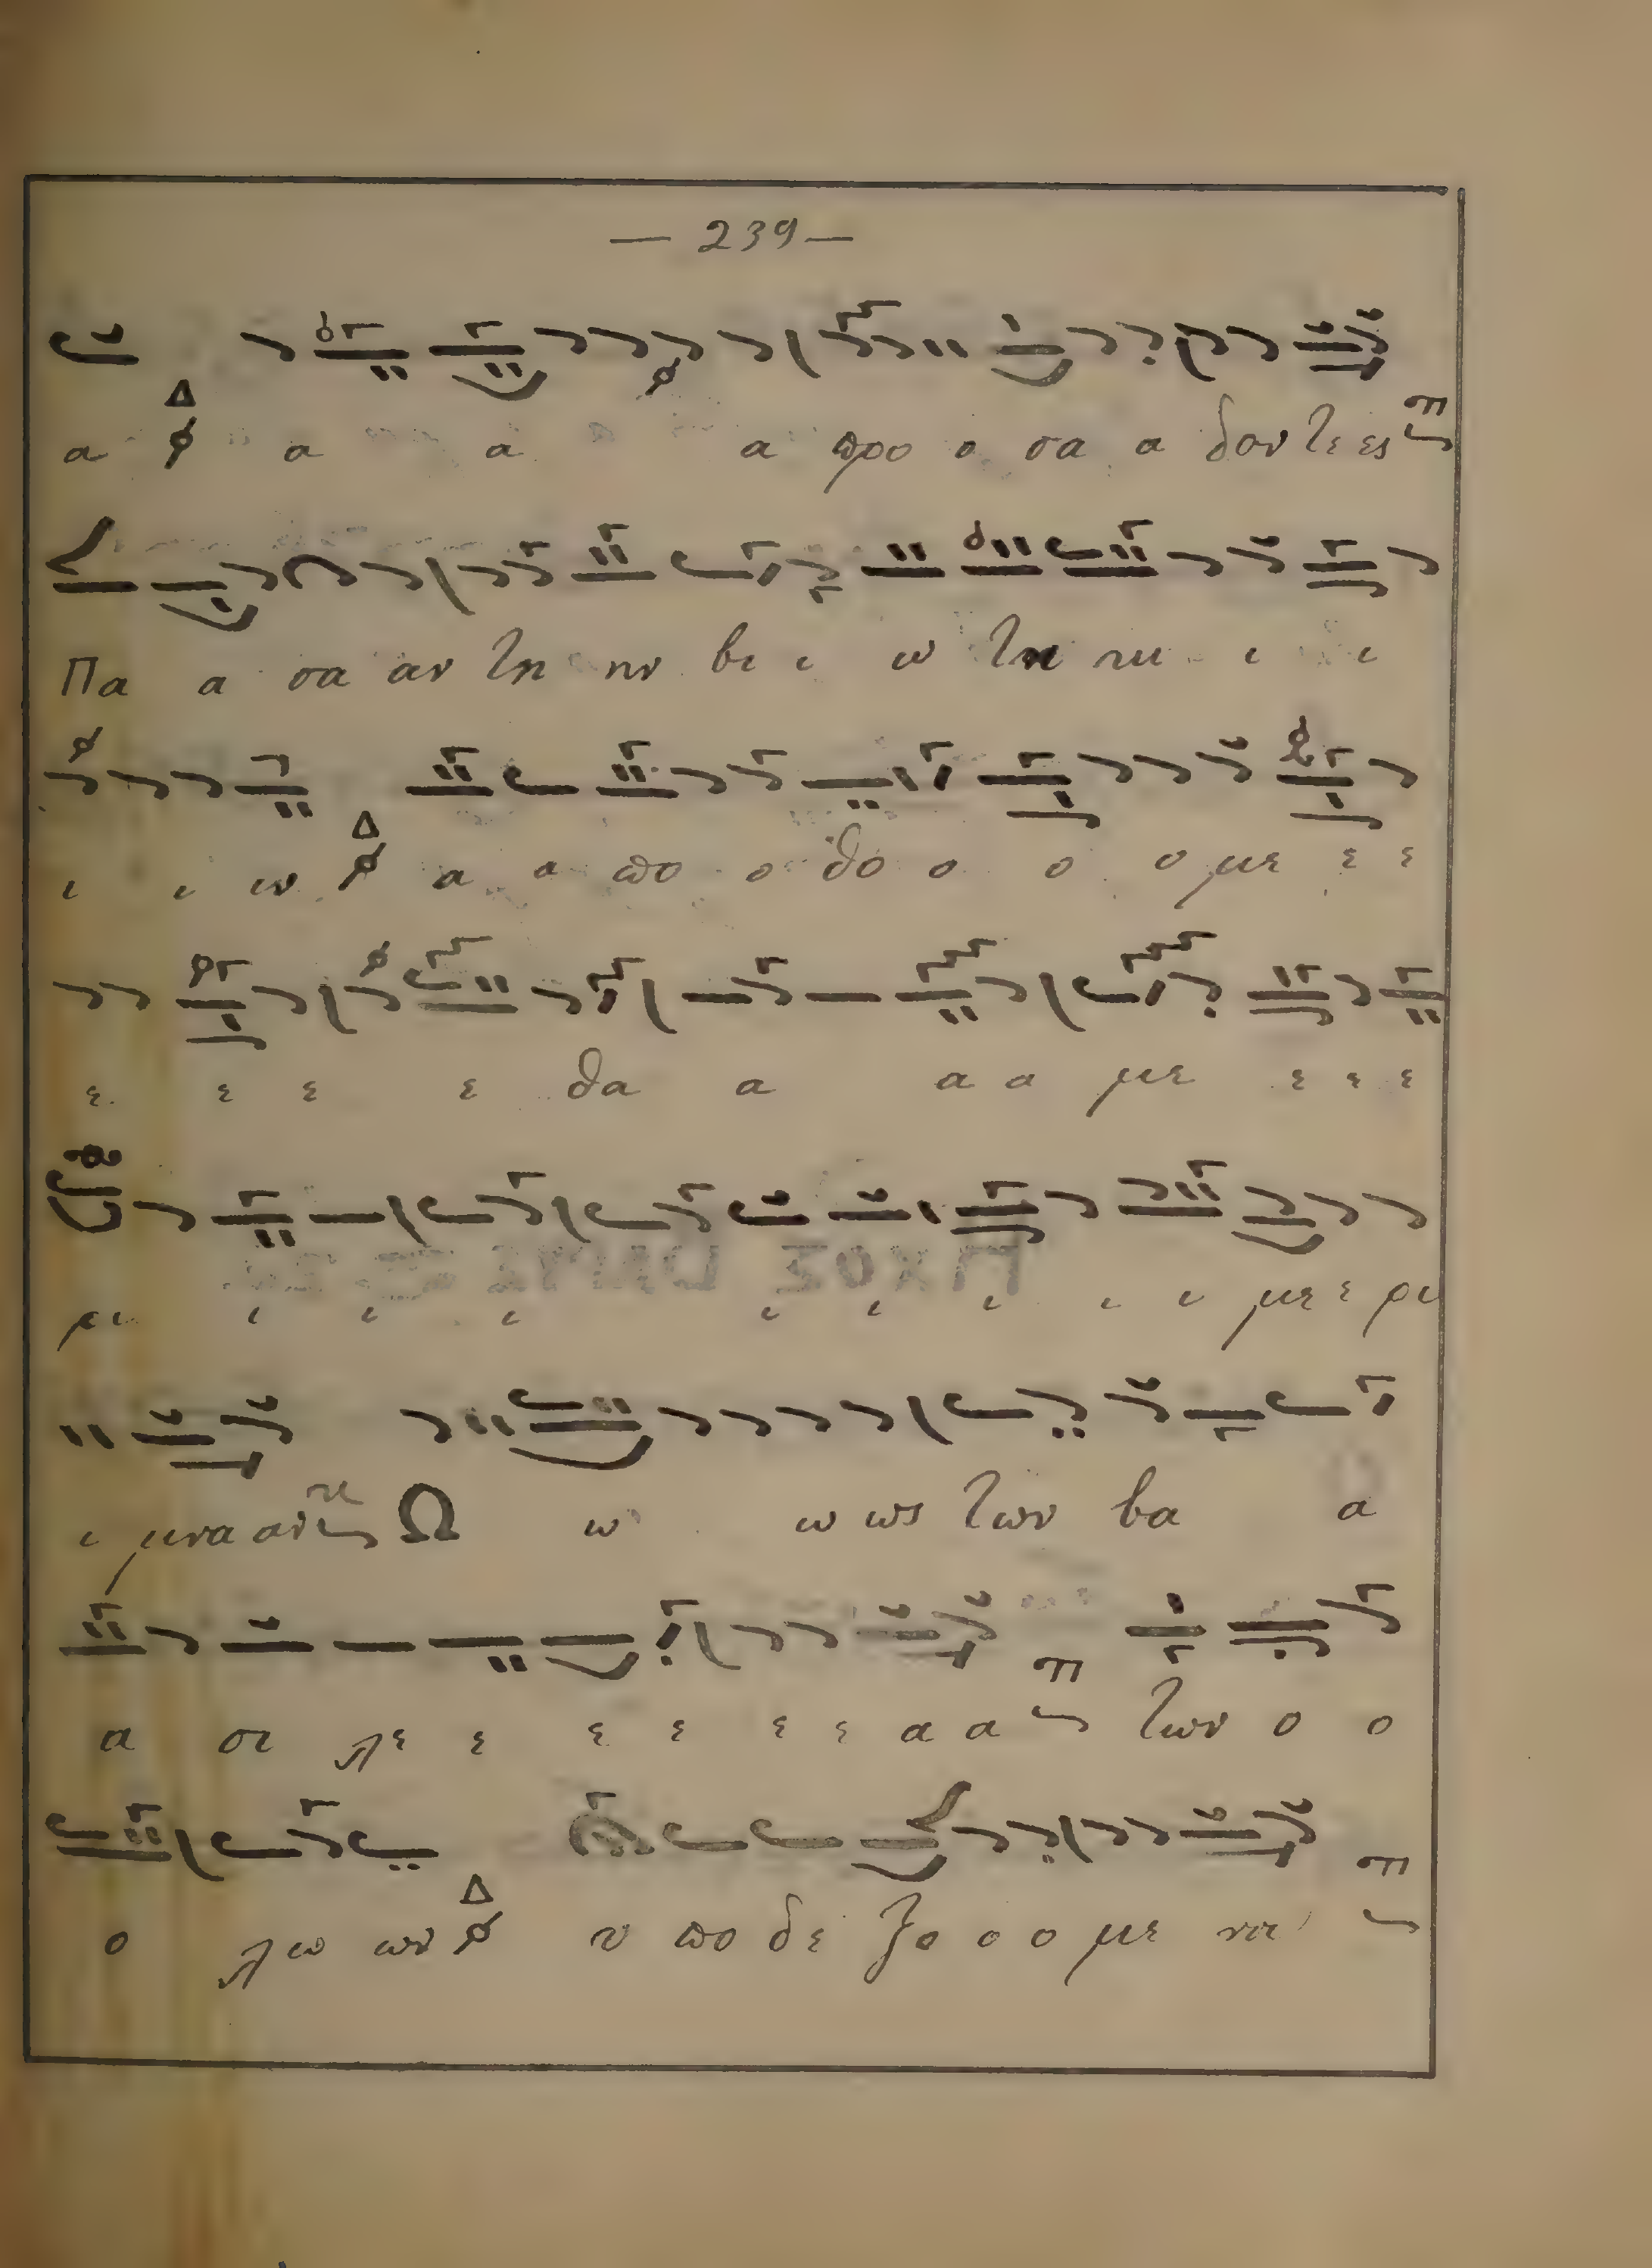 — 239 —
α Δ α α α προ ο σα α δον τε ες π
Πα α σα αν τη ην βι ι ω τι κι ι ι
ι ι ω Δ α α πο ο θο ο ο ο με ε ε
ε ε ε ε θα α α α με ε ε ε
ρι ι ι ι ι ι ι ι ι με ε ρι
ι μνα αν Ω ω ω ως των βα α
α σι λε ε ε ε ε ε α α π των ο ο
ο λω ων Δ υ πο δε ξο ο ο με νοι π